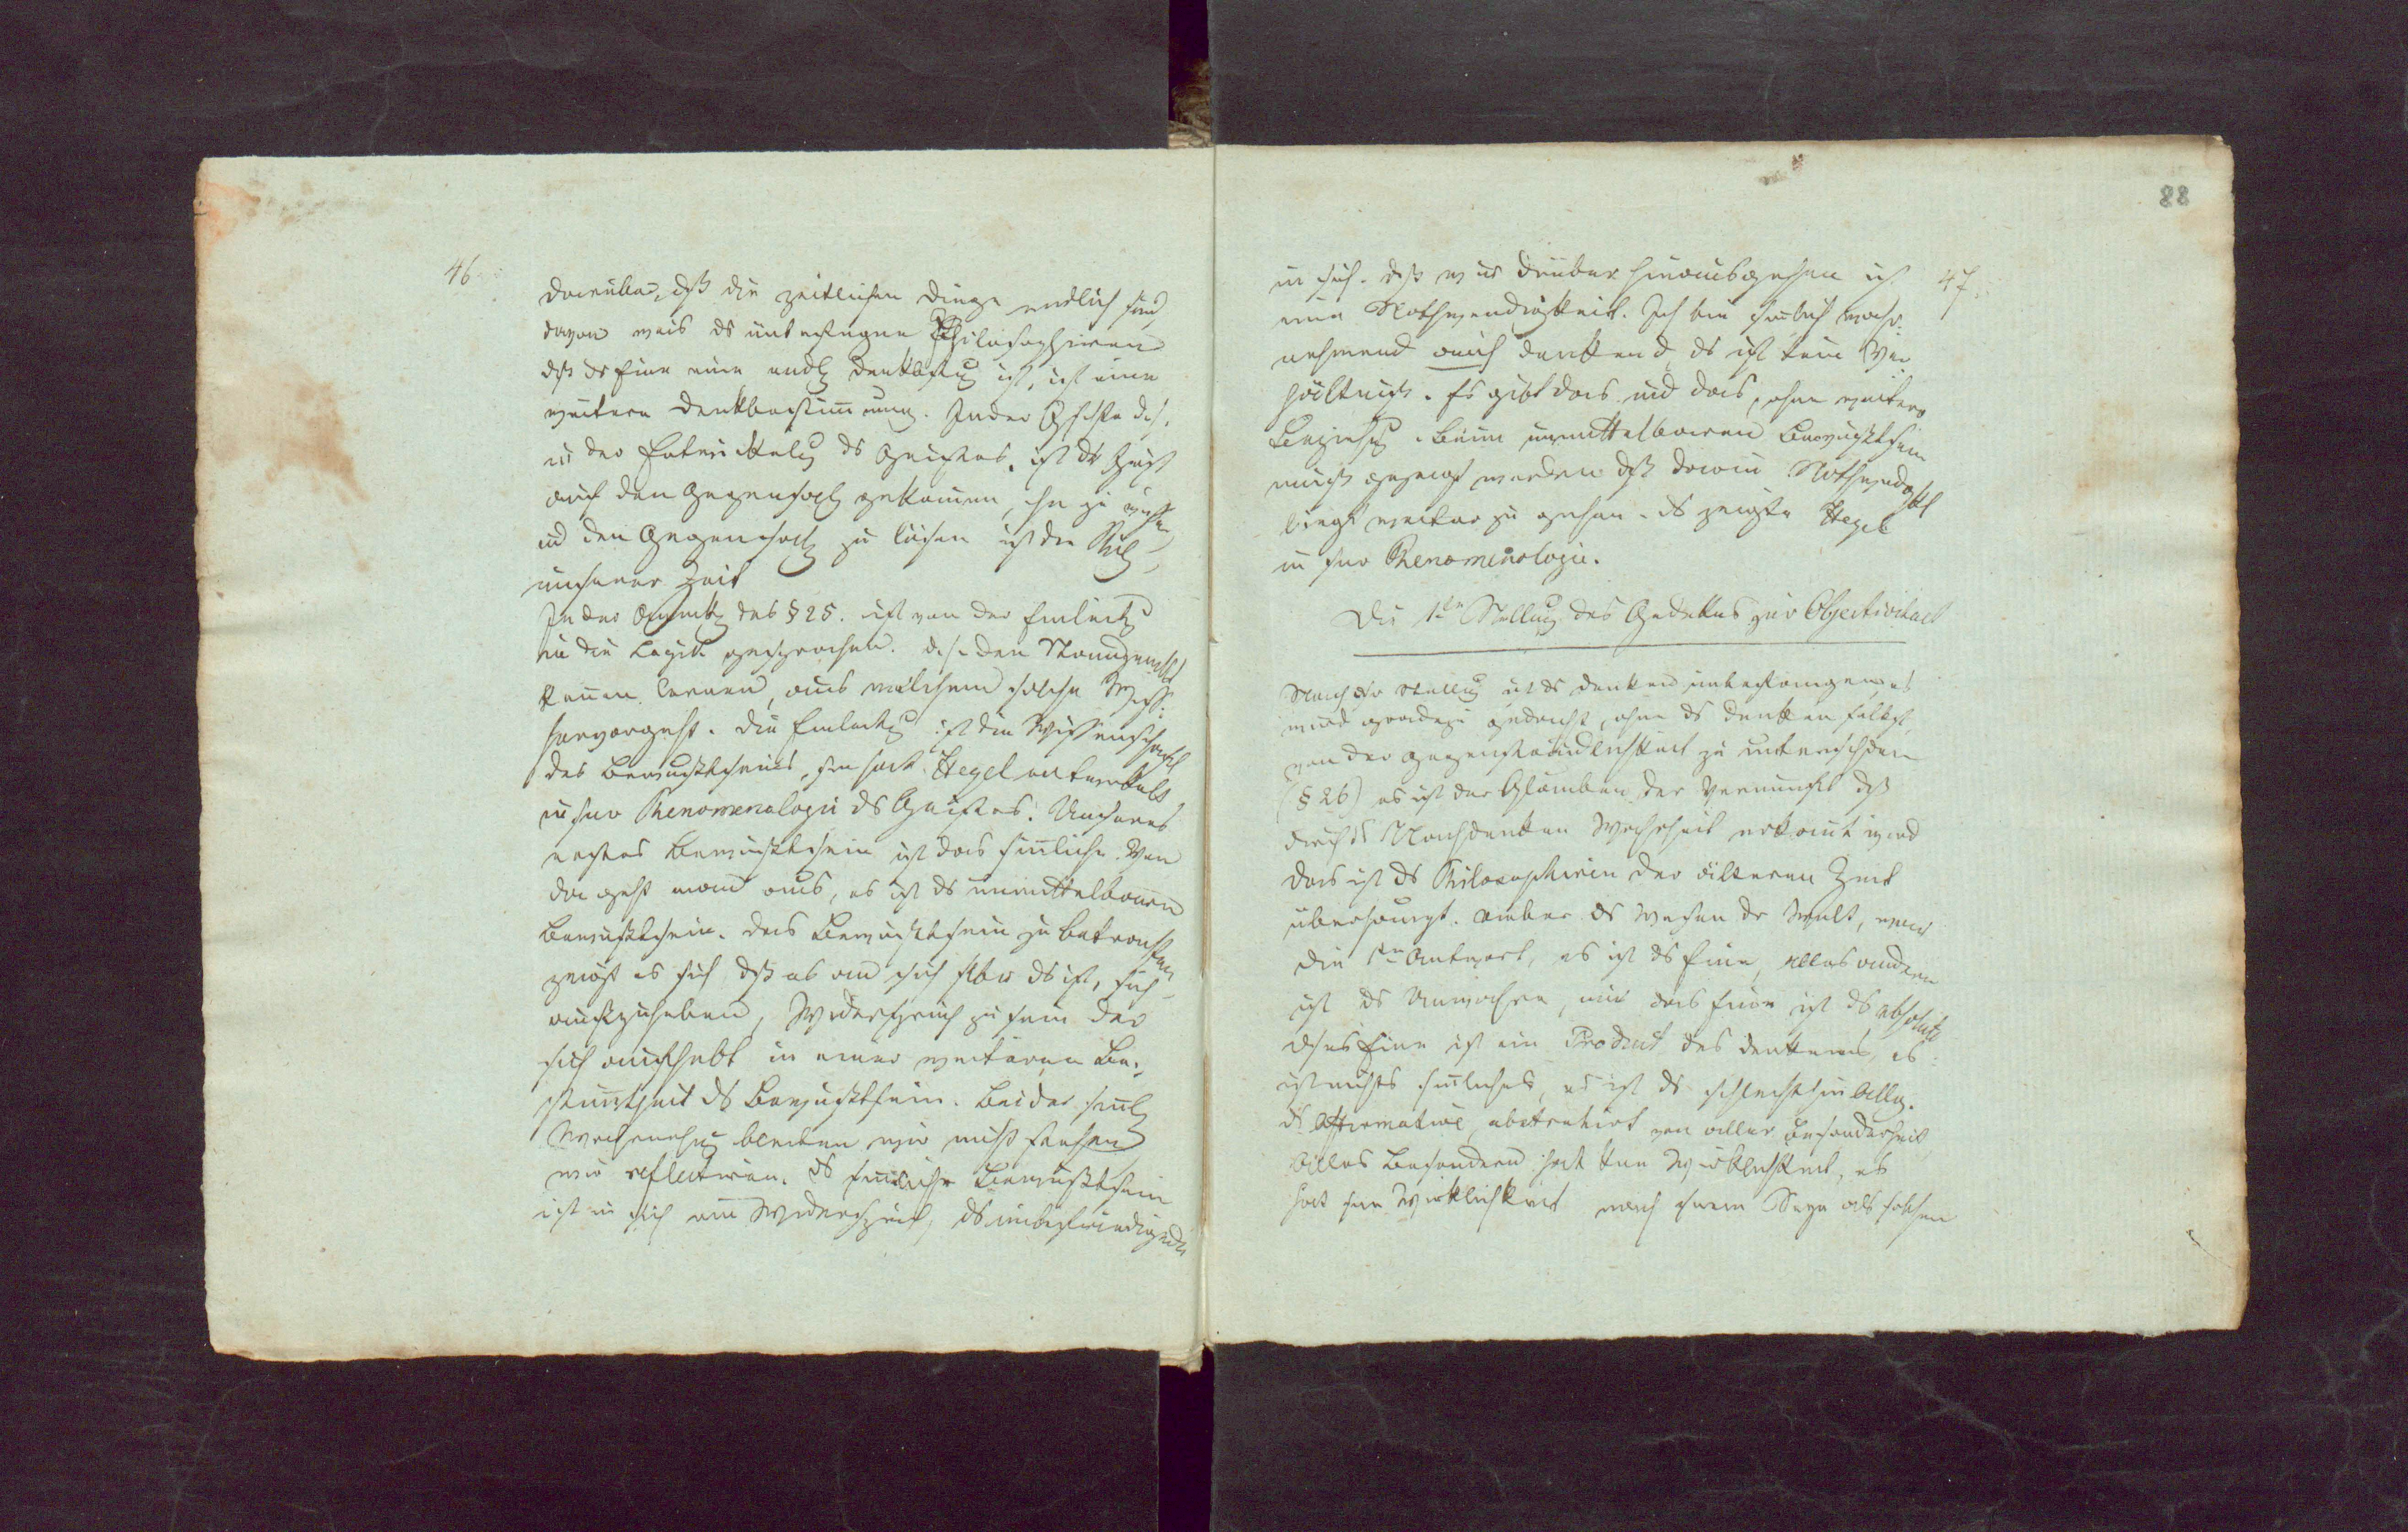 46
darüber, dß die zeitlichen Dinge endlich sind
davon weis ds unbefangene Philosophiren
dß ds Eine eine endl Denkbestg ist, ist eine
weitere Denkbestimmung. In der Gschichte d.h.
in der Entwickelg ds Geistes, ist dr Geist
auf den Gegensatz gekommen, ihn zu wissen
ud den Gegensatz zu lösen ist der
unserer Zeit
In der Anmerkg des § 25. ist von der Einleitg
in die Logik gesprochen. d.h. den Standpunkt
kennen lernen, aus welchem solche Wiss:
hervorgeht. Die Einleitg ist die Wissenschaft
des Bewußtseins, sie hat Hegel entwickelt
in snr Phenomenologie ds Geistes. Unseres
erstes Bewußtsein ist das sinnliche. Von
da geht man aus, es ist ds unmittelbaren
Bewußtsein. Das Bewußtsein zu betrachten
zeigt es sich dß es an sich selbst ds ist, sich
aufzuheben, Widerspruch zu sein der
sich aufhebt in einer weiteren Be-
stimtheit ds Bewußtsein. Bei der sinnl
Wahrnehmg bleiben wir nicht stehen
wir reflectiren. ds sinnliche Bewußtsein
ist in sich ein Widerspruch, ds unbefriedigende
88
47
in sich. dß wir drüber hinausgehen ist
eine Nothwendigkeit. Ich bin sinnlich wahr-
nehmend auch denkend, ds ist kein Ver
hältniß. Es gibt das und das, ohne weitere
Beziehg. Beim unmittelbaren Bewußtsein
muß gezeigt werden dß darin Nothwendigkt
liegt weiter zu gehen. ds zeigte Hegel
in snr Phenomenologie.
Die 1te Stellung des Gedankens zur Objectivitaet
Nach dsr Stellug ist ds Denken unbefangen, es
wird gradezu gedacht, ohne ds Denken selbst,
von der Gegenständlichkeit zu unterscheiden
(§ 26) es ist der Glauben der Vernunft dß
durch ds Nachdenken Wahrheit erkannt wird
das ist ds Philosophiren der älteren Zeit
überhaupt. ueber ds Wesen dr Welt, war
die 1te Antwort, es ist ds Eine, alles andere
ist ds Unwahre, nur das Eine ist ds absolute
dses Eine ist ein Product des Denkens, es
ist nichts sinnliches, es ist ds schlechthin Allg.
ds Affirmative, abstrahirt von aller Besonderheit
Alles Besondere hat kein Wirklichkeit, es
hat sne Wirklichkeit nach snem Seyn als solchen